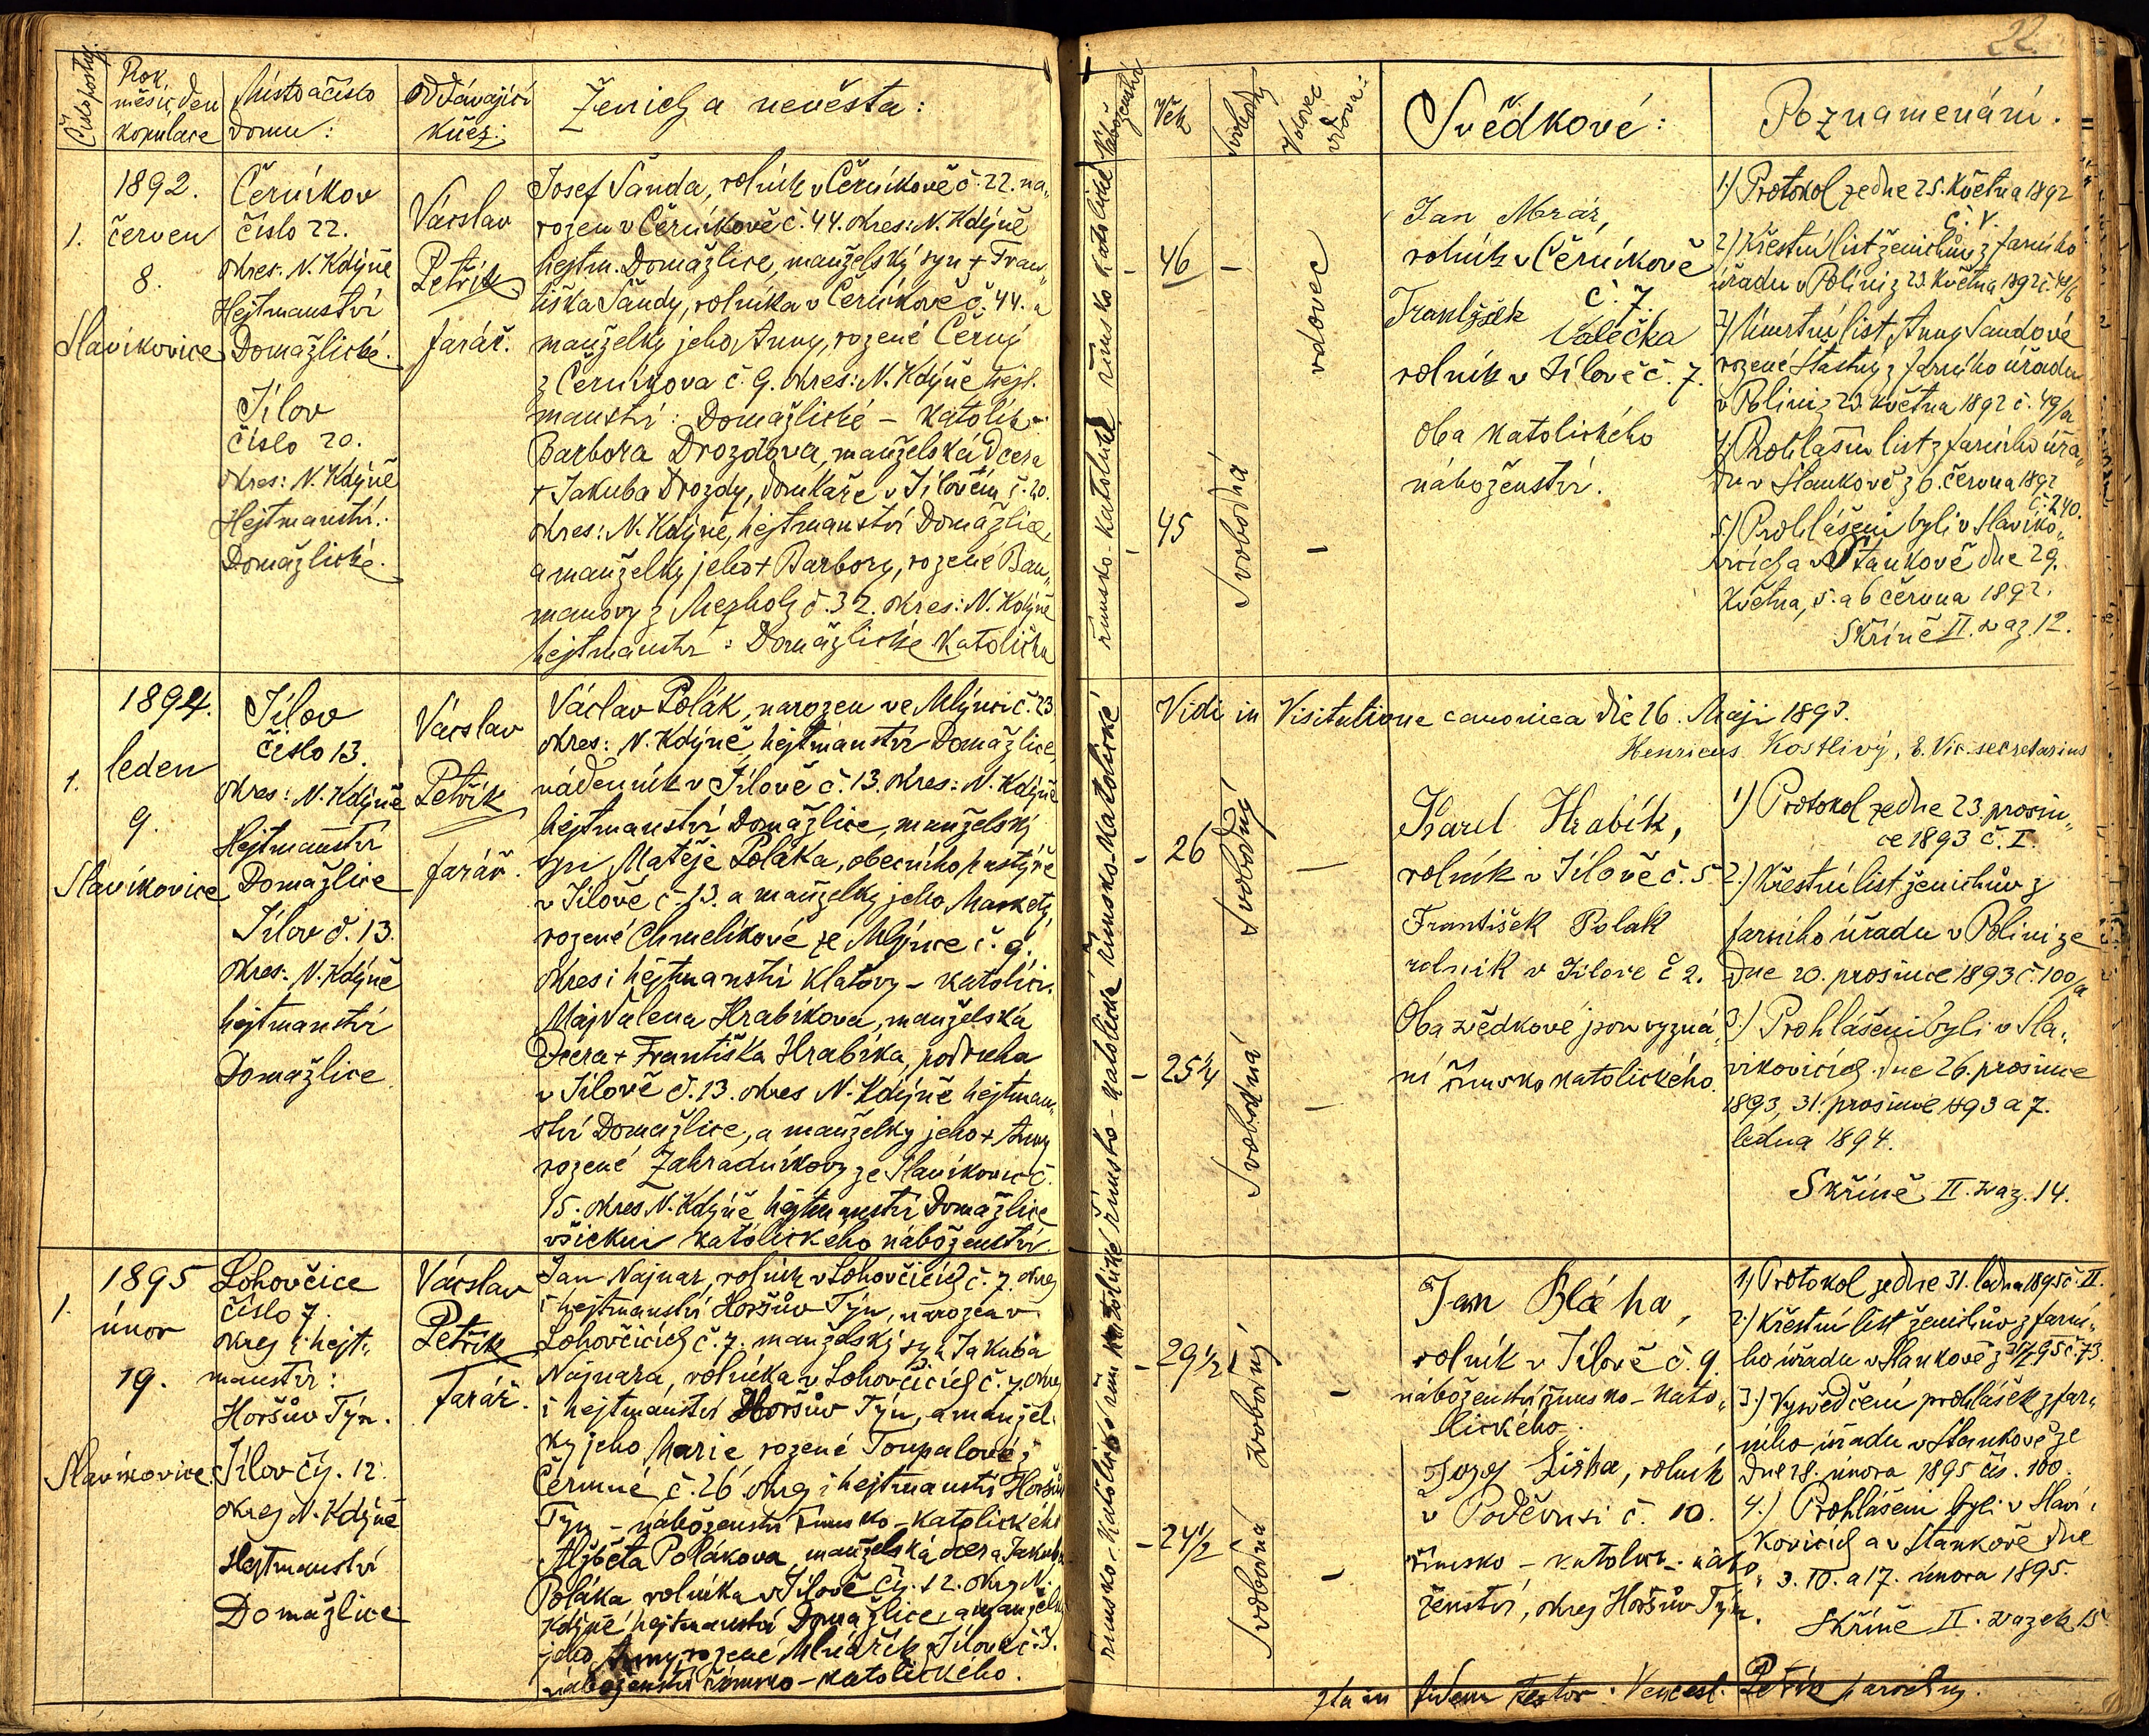 22.
Číslo postup.
Rok
měsíc den
kopulace
Místo a číslo
domu:
Oddávající
kněz:
Ženich a nevěsta:
Náboženství
Věk
Svobodný
Vdovec
vdova:
Svědkové:
Poznamenání.
1892.
1. červen
8.
Slavíkovice
Černíkov
číslo 22.
okres: N. Kdýně
Hejtmanství
Domažlické.
Jílov
číslo 20.
okres: N. Kdýně
Hejtmanství:
Domažlické.
Vácslav
Petřík
farář.
Josef Šanda, rolník v Černíkově č. 22. na„
rozen v Černíkově č. 44. okres: N. Kdýně
hejtm. Domažlice, manželský syn + Fran„
tiška Šandy, rolníka v Černíkově č. 44. a
manželky jeho Anny, rozené Černý
z Černíkova č. 9. okres: N. Kdýně hejt.
manství: Domažlické – katolík
Barbora Drozdova, manželská dcera
+ Jakuba Drozdy, domkáře v Jílovém č. 20.
okres: N. Kdýně, hejtmanství Domažlice,
a manželky jeho + Barbory, rozené Bau„
manovy z Mezholz č. 32. okres: N. Kdýně
hejtmanství: Domažlické katolička
římsko-katolické římsko katolické
46 –
vdovec
45
Svobodná
–
Jan Mráz,
rolník v Černíkově
č. 7.
František
Valečka
rolník v Jílově č. 7.
Oba katolického
náboženství.
1.) Protokol ze dne 25. května 1892
č. V.
2.) Křestní list ženichův z farního
úřadu v Polini z 23. května 1892 č. 48/b
3.) Úmrtní list Anny Šandové
rozené Šťastný z farního úřadu
v Polini z 23. května 1892 č. 49/a
4.) Prohlašní list z farního úřa„
du v Stankově z 6. června 1892
č. 240.
5.) Prohlášeni byli v Slavíko„
vicích a v Staňkově dne 29.
Května, 5. a 6 června 1892.
Skříně II. svaz. 12.
1894.
1. leden
9.
Slavíkovice
Jílov
číslo 13.
okres: N. Kdýně
Hejtmanství
Domažlice
Jílov č. 13.
okres: N. Kdýně
hejtmanství
Domažlice
Vácslav
Petřík
farář.
Václav Polák, narozen ve Mlýnci č. 23
okres: N. Kdýně, hejtmanství Domažlice,
nádenník v Jílově č. 13. okres: N. Kdýně
hejtmanství Domažlice, manželský
syn Matěje Poláka, obecního pastýře
v Jílově č. 13. a manželky jeho Markety,
rozené Chmelíkové ze Mlýnce č. 9.
okres i hejtmanství Klatovy – katolíci
Majdalena Hrabíkova, manželská
dcera + Františka Hrabíka, podruha
v Jílově č. 13. okres N. Kdýně hejtman„
ství Domažlice, a manželky jeho + Anny
rozené Zahradníkovy ze Slavíkovic č.
15. okres N. Kdýně hejtmanství Domažlice
všickni katolického náboženství.
římsko-katolické římsko-katolické
Vidi in Visitatione canonica die 26. Maji 1893.
Henricus Kostlivý, E. Vic. secretarius
– 26
Svobodný
–
– 25 1/4
Svobodná
–
Karel Hrabík,
rolník v Jílově č. 5.
František Polák
rolník v Jílově č 2.
Oba svědkové jsou vyzná„
ní římsko katolického.
1.) Protokol ze dne 23. prosin„
ce 1893 č. I.
2.) Křestní list ženichův z
farního úřadu v Polini ze
dne 20. prosince 1893 č. 100/a
3.) Prohlášeni byli v Sla„
víkovicích dne 26. prosince
1893, 31. prosince 1893 a 7.
ledna 1894.
Skříně II. svaz. 14.
1895
1. únor
19.
Slavíkovice
Lohovčice
číslo 7.
okres i hejt„
manství:
Horšův Týn.
Jílov čís. 12.
okres N. Kdýně
Hejtmanství
Domažlice
Vácslav
Petřík
farář.
Jan Najnar, rolník v Lohovčicích č. 7. okres
i hejtmanství Horšův Týn, narozen v
Lohovčicích č. 7. manželský syn Jakuba
Najnara, rolníka v Lohovčicích č. 7. okres
i hejtmanství Horšův Týn, a manžel„
ky jeho Marie, rozené Toupalové z
Čermné č. 26 okres i hejtmanství Horšův
Týn – náboženství římsko-katolického
Alžběta Polákova, manželská dcera Jakuba
Poláka rolníka v Jílově čís. 12. okres N.
Kdýně hejtmanství Domažlice, a manželky
jeho Anny, rozené Mlnařík z Jílova č. 3.
náboženství římsko-katolického.
římsko-katolické římsko katolické
– 29 1/2
svobodný
–
– 24 1/2
Svobodná
–
Jan Bláha,
rolník v Jílově č. 9.
náboženství římsko-kato„
lického.
Josef Liška, rolník
v Poděvusi č. 10.
římsko-katolic. nábo„
ženství, okres Horšův Týn.
1.) Protokol ze dne 31. ledna 1895 č. II.
2.) Křestní list ženichův z farní„
ho úřadu v Stankově č. 73.
3.) Vysvědčení prohlášek z far„
ního úřadu v Stankově ze
dne 18. února 1895 čís. 100.
4.) Prohlášeni byli v Slaví„
kovicích a v Stankově dne
3. 10. a 17. února 1895.
Skříně II. svazek 15
Ita in fidem testor. Vencesl. Petřík parochus.